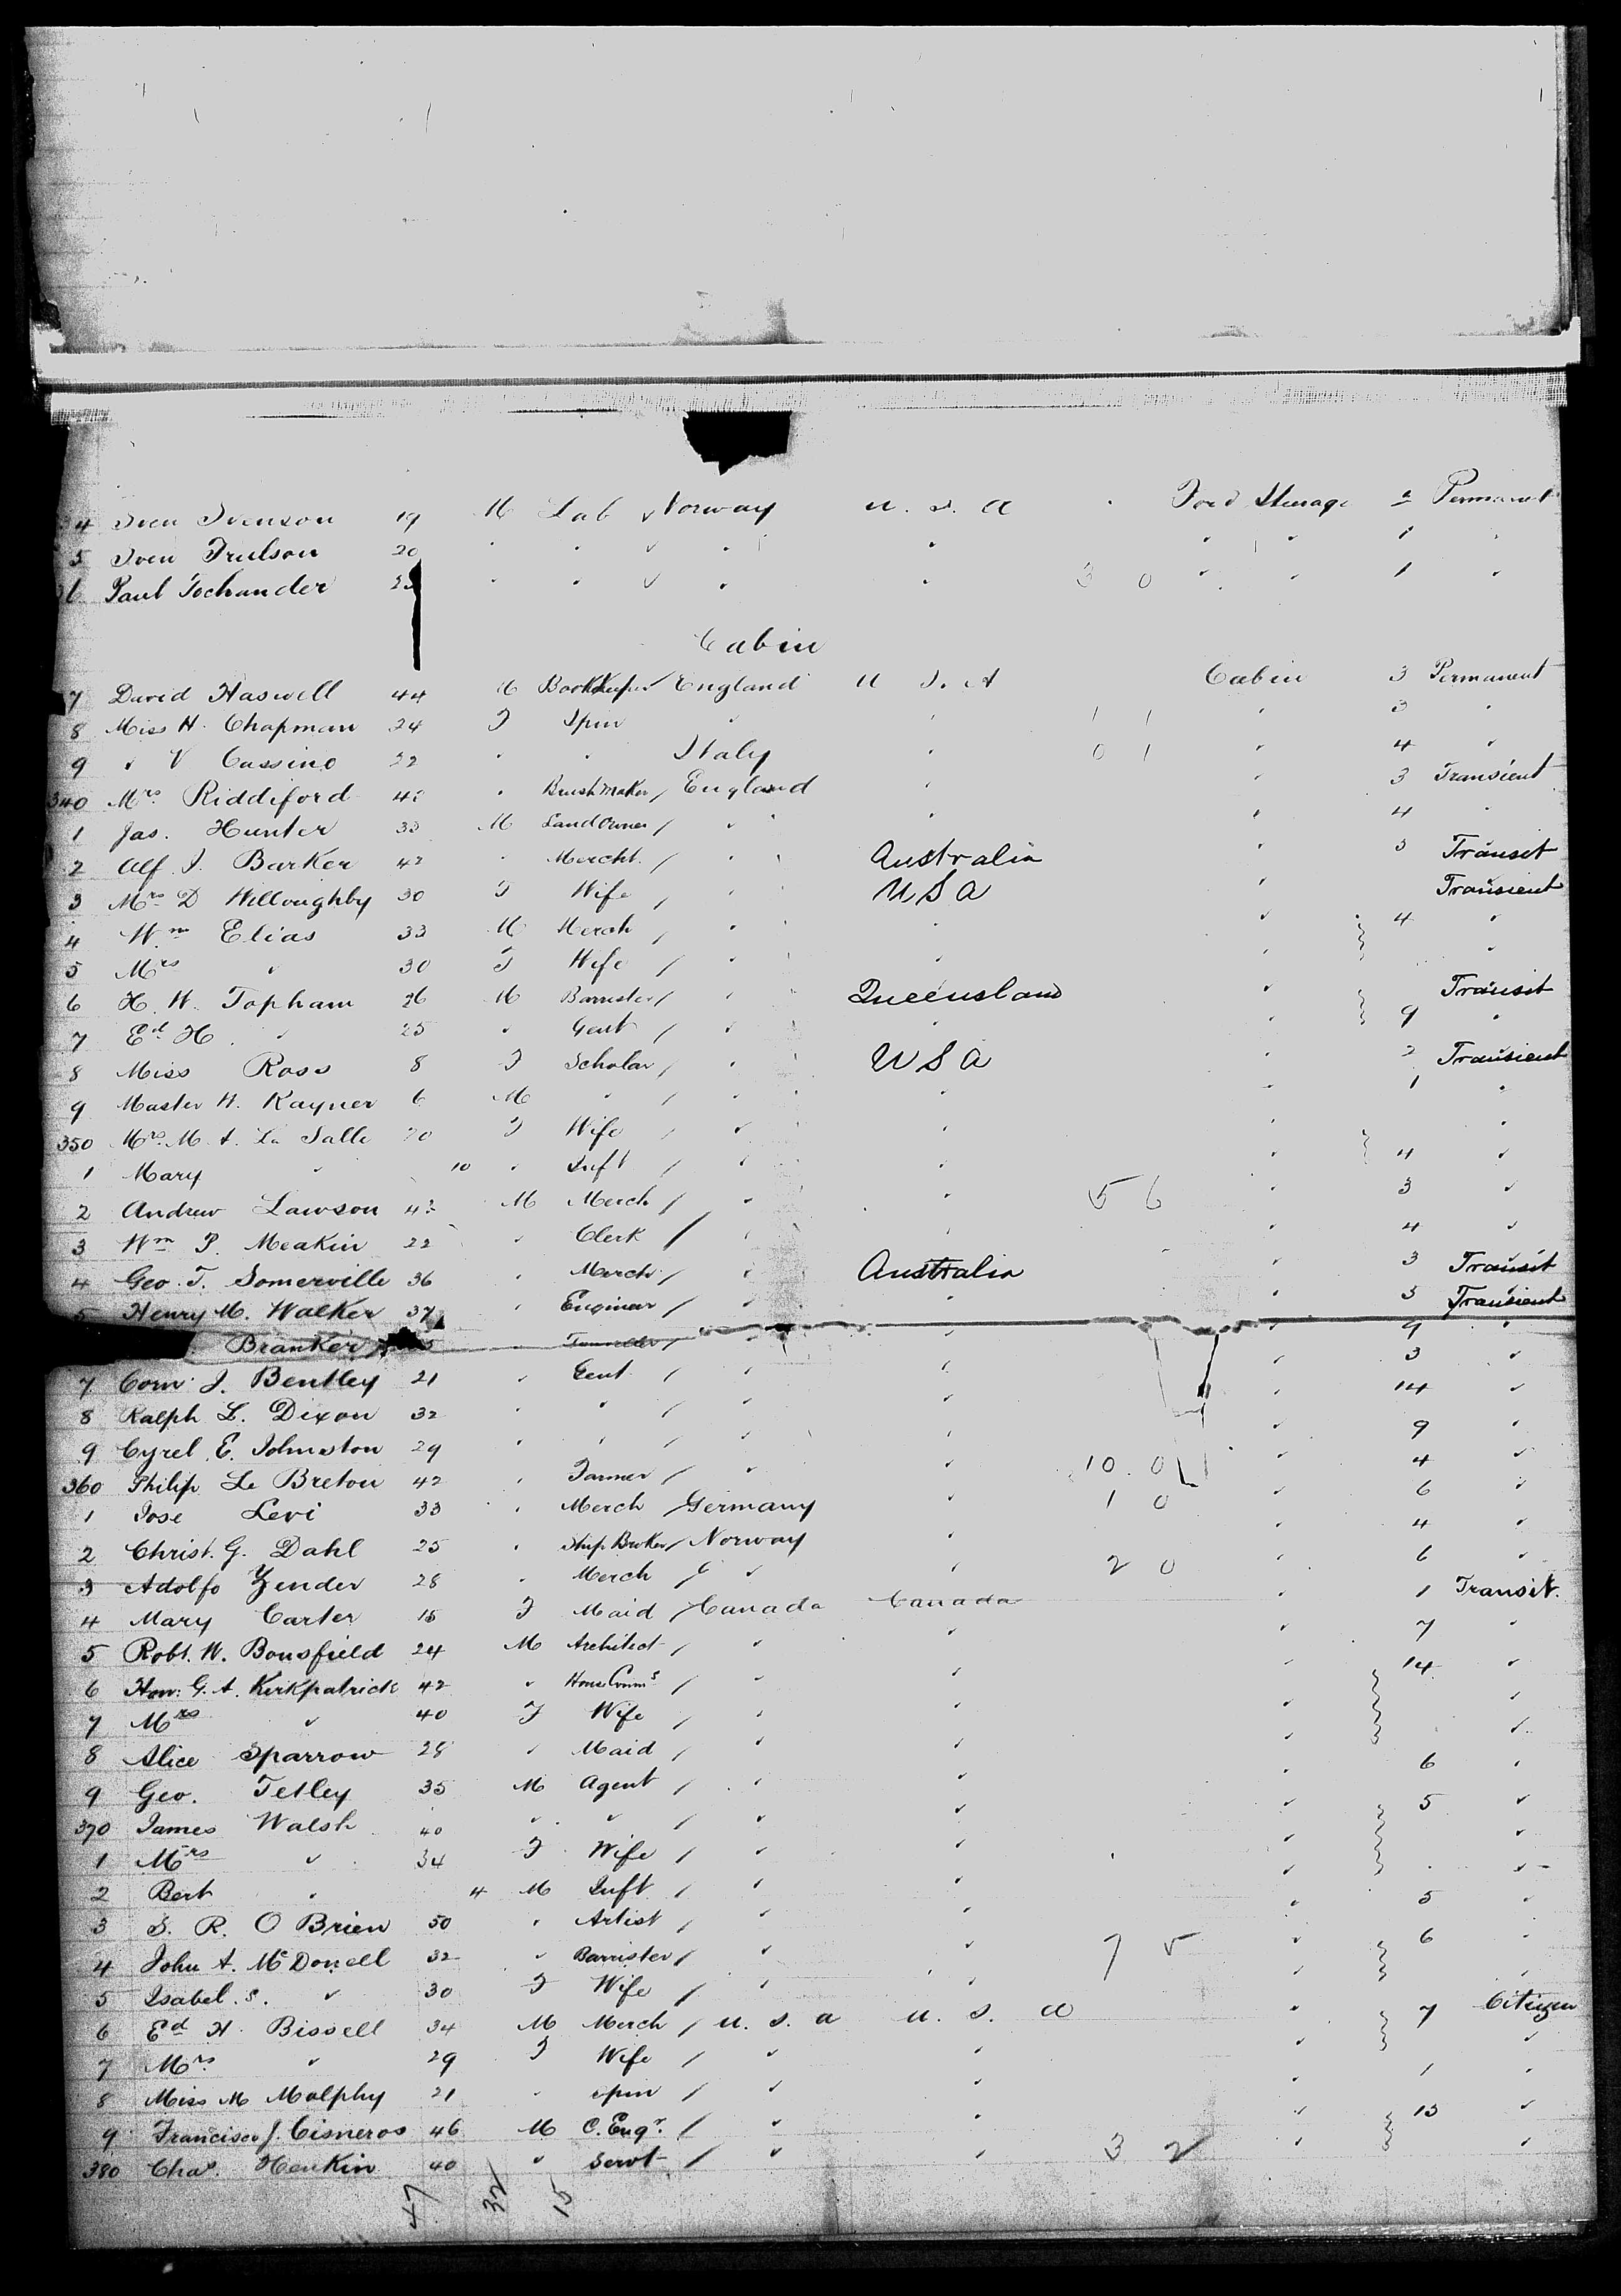 34 Sven Svenson 19 M Lab ✓ Norway U. S. A Ford Steerage 2 Permanent
5 Sven Trulson 20 " " ✓ " " " " 1 "
36 Paul Tochander " " ✓ " " 3 0 " " 1 "
Cabin
7 David Haswell 44 M Bookkeeper / England U S. A Cabin 3 Permanent
8 Miss H. Chapman 24 F Spin " " 1 1 " 3 "
9 " V Cassino 22 " " Italy " 0 1 " 4 "
340 Mrs Riddiford " Brush Maker / England " " 3 Transient
1 Jas. Hunter 33 M Land Owner / " " " 4 "
2 Alf. J. Barker 42 " Mercht. / " Australia " 3 Transit
3 Mrs D Willoughby 30 F Wife / " U S A " Transient
4 Wm Elias 33 M Merch / " " " 4 "
5 Mrs " 30 F Wife / " " " "
6 H. W. Topham 26 M Barrister / " Queensland " Transit
7 Ed H. " 25 " Gent / " " " 9 "
8 Miss Ross 8 F Scholar / " U S A " 2 Transient
9 Master H. Rayner 6 M " / " " " 1 "
350 Mrs. M. A. La Salle F Wife / " " " "
1 Mary " 10 " Inft / " " " 4 "
2 Andrew Lawson M Merch / " " 5 6 " 3 "
3 Wm P. Meakin 22 " Clerk / " " " 4 "
4 Geo. T. Somerville 36 " Merch / " Australia " 3 Transit
5 Henry M. Walker 37 " Engineer / " " " 3 Transient
Branker " Traveller / " " 9 "
7 Corn. J. Bentley 21 " Gent / " " " 3 "
8 Ralph L. Dixon 32 " " / " " " 14 "
9 Cyrel E. Johnston 29 " " / " " " 9 "
360 Philip Le Breton 42 " Farmer / " " 10 0 " 4 "
1 Jose Levi 33 " Merch / Germany " 1 0 " 6 "
2 Christ. G. Dahl 25 " Ship Broker / Norway " " 4 "
3 Adolfo Zender 28 " Merch / " " 2 0 " 6 "
4 Mary Carter 15 F Maid / Canada Canada " 1 Transit.
5 Robt. W. Bousfield 24 M Architect / " " " 7 "
6 Hon. G. A. Kirkpatrick 42 " House Comms / " " 14 "
7 Mrs " 40 F Wife / " " "
8 Alice Sparrow 28 " Maid / " " "
9 Geo. Tetley 35 M Agent / " " " 6 "
370 James Walsh 40 " " / " " " 5 "
1 Mrs " 34 F Wife / " " " "
2 Bert " 4 M Inft / " " " "
3 S. R. O Brien 50 " Artist / " " " 5 "
4 John A. McDonell 32 " Barrister / " " 7 5 " 6 "
5 Isabel. S. " 30 F Wife / " " " "
6 Ed H. Bissell 34 M Merch / U. S. A U. S. A " 7 Citizen
7 Mrs " 29 F Wife / " " " "
8 Miss M Malphy 21 " spin / " " " 1 "
9 Francisco J. Cisneros 46 M C. Engr. / " " " 13 "
380 Chas. Henkin 40 " Servt / " " 3 2 " "
47 32 15